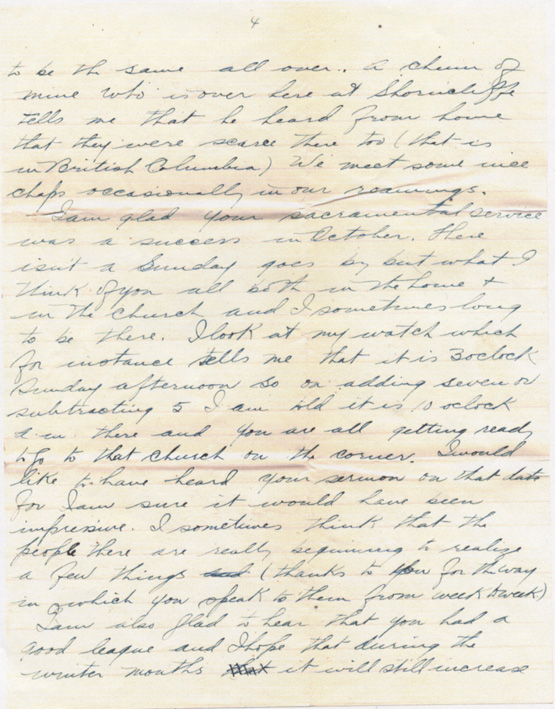 4
to be the same all over. A chum of
mine who is over here at Shorncliffe
tells me that he heard from home
that they were scarce there too (that is
in British Columbia) We meet some nice
chaps occasionally in our roamings.
I am glad your sacramental service
was a success in October. There
isn't a Sunday goes by but what I
think of you all both in the home +
in the church and I sometimes long
to be there. I look at my watch which
for instance tells me that it is 3 oclock
Sunday afternoon so on adding seven or
subtracting 5 I am told it is 10 oclock
a.m there and you are all getting ready
to go to that church on the corner. I would
like to have heard your sermon on that date
for I am sure it would have been
impressive. I sometimes think that the
people there are really beginning to realize
a few things (thanks to you for the way
in which you speak to them from week to week)
I am also glad to hear that you had a
good league and I hope that during the
winter months it will still increase